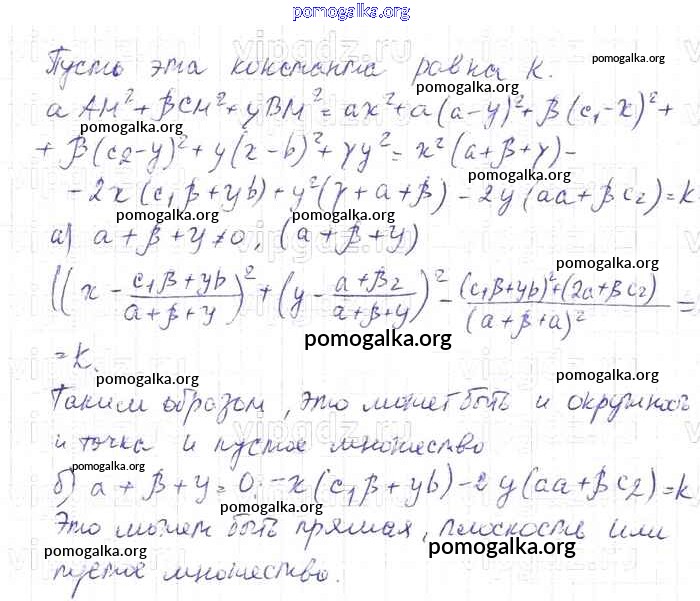 pomogalka.org
Пусть эта константа равна K.
pomogalka.org
a AM² + βCM² + yBM² = ax² + a(a-y)² + β(c₁-x)² +
pomogalka.org
+ β(c₂-y)² + y(x-b)² + γy² = x²(a+β+γ) -
pomogalka.org
- 2x(c₁β+yb) + y²(γ+a+β) - 2y(aa+βc₂) = k
pomogalka.org pomogalka.org
а) a+β+y≠0, (a+β+y)
pomogalka.org
((x - (c₁β+yb)/(a+β+y))² + (y - (a+β₂)/(a+β+y))² - ((c₁β+yb)²+(2a+βc₂))/(a+β+a)² =
pomogalka.org
= k.
pomogalka.org pomogalka.org
Таким образом, это может быть и окружность
и точка и пустое множество
pomogalka.org
б) a+β+y=0. -x(c₁β+yb) - 2y(aa+βc₂) = k
Это может быть прямая, плоскость или
pomogalka.org pomogalka.org
пустое множество.